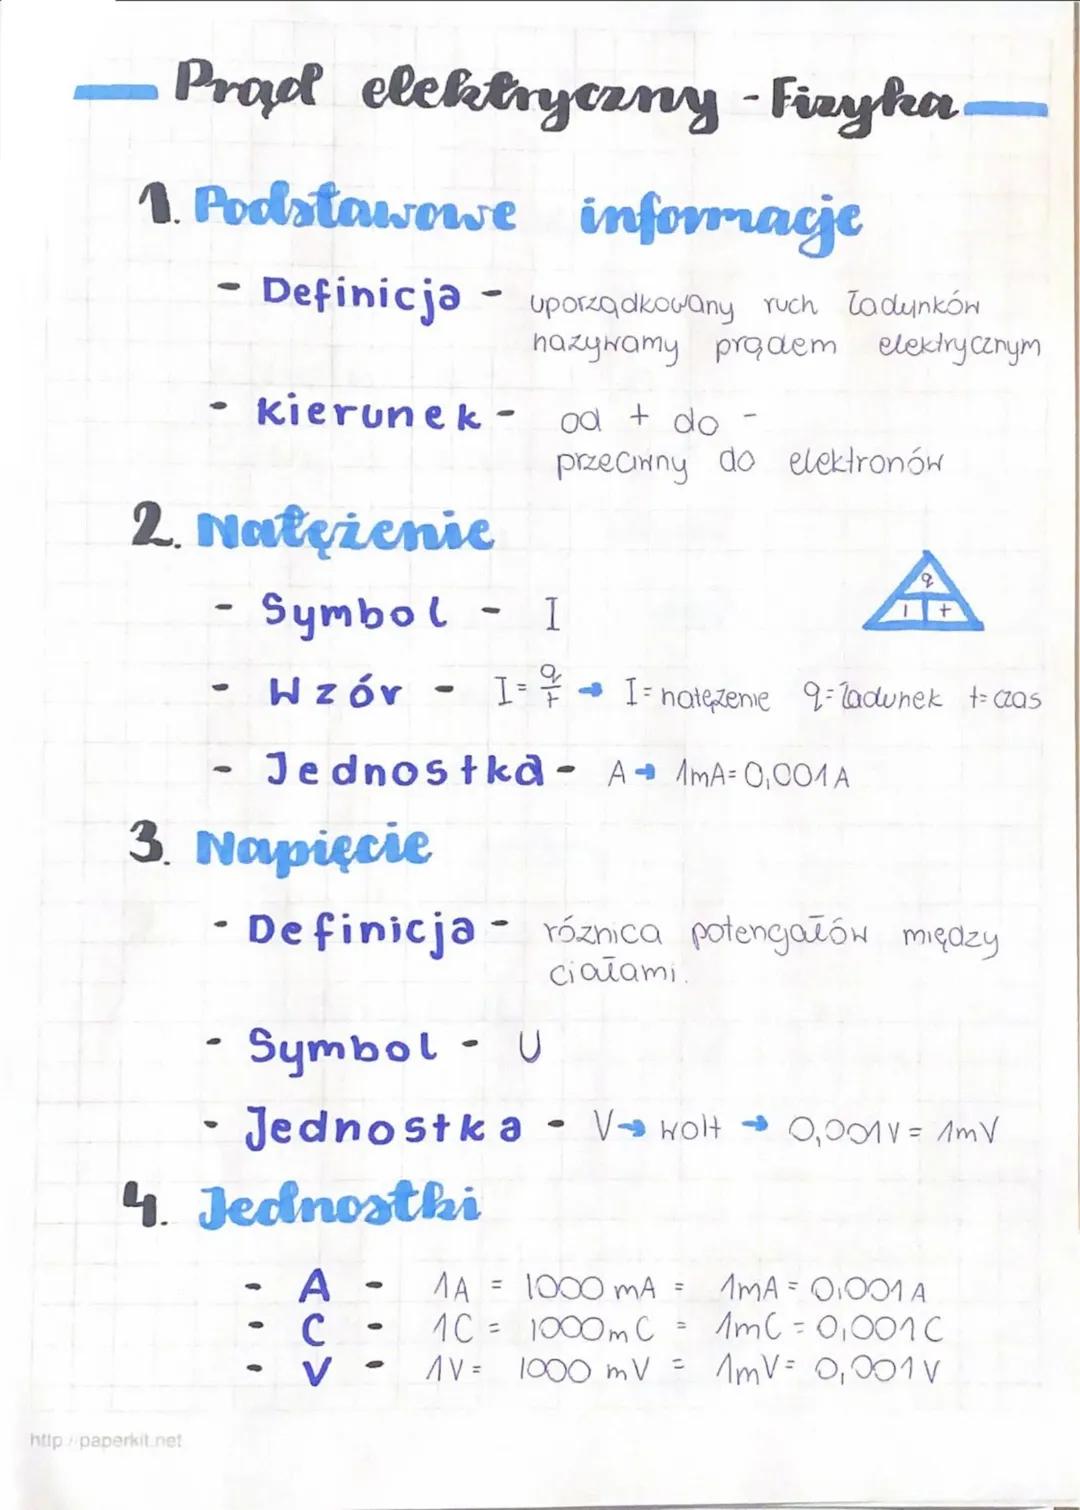 Prąd elektryczny - Fizyka
1. Podstawowe informacje
- Definicja - uporządkowany ruch ładunków
nazywamy prądem elektrycznym
- Kierunek - od + do -
przeciwny do elektronów
2. Natężenie
q
I t
- Symbol - I
- Wzór - I = q/t → I = natężenie q = ładunek t = czas
- Jednostka - A → 1mA = 0,001 A
3. Napięcie
- Definicja - różnica potencjałów między
ciałami.
- Symbol - U
- Jednostka - V → wolt → 0,001V = 1mV
4. Jednostki
- A - 1A = 1000 mA = 1mA = 0,001 A
- C - 1C = 1000mC = 1mC = 0,001 C
- V - 1V = 1000 mV = 1mV = 0,001 V
http://paperkit.net